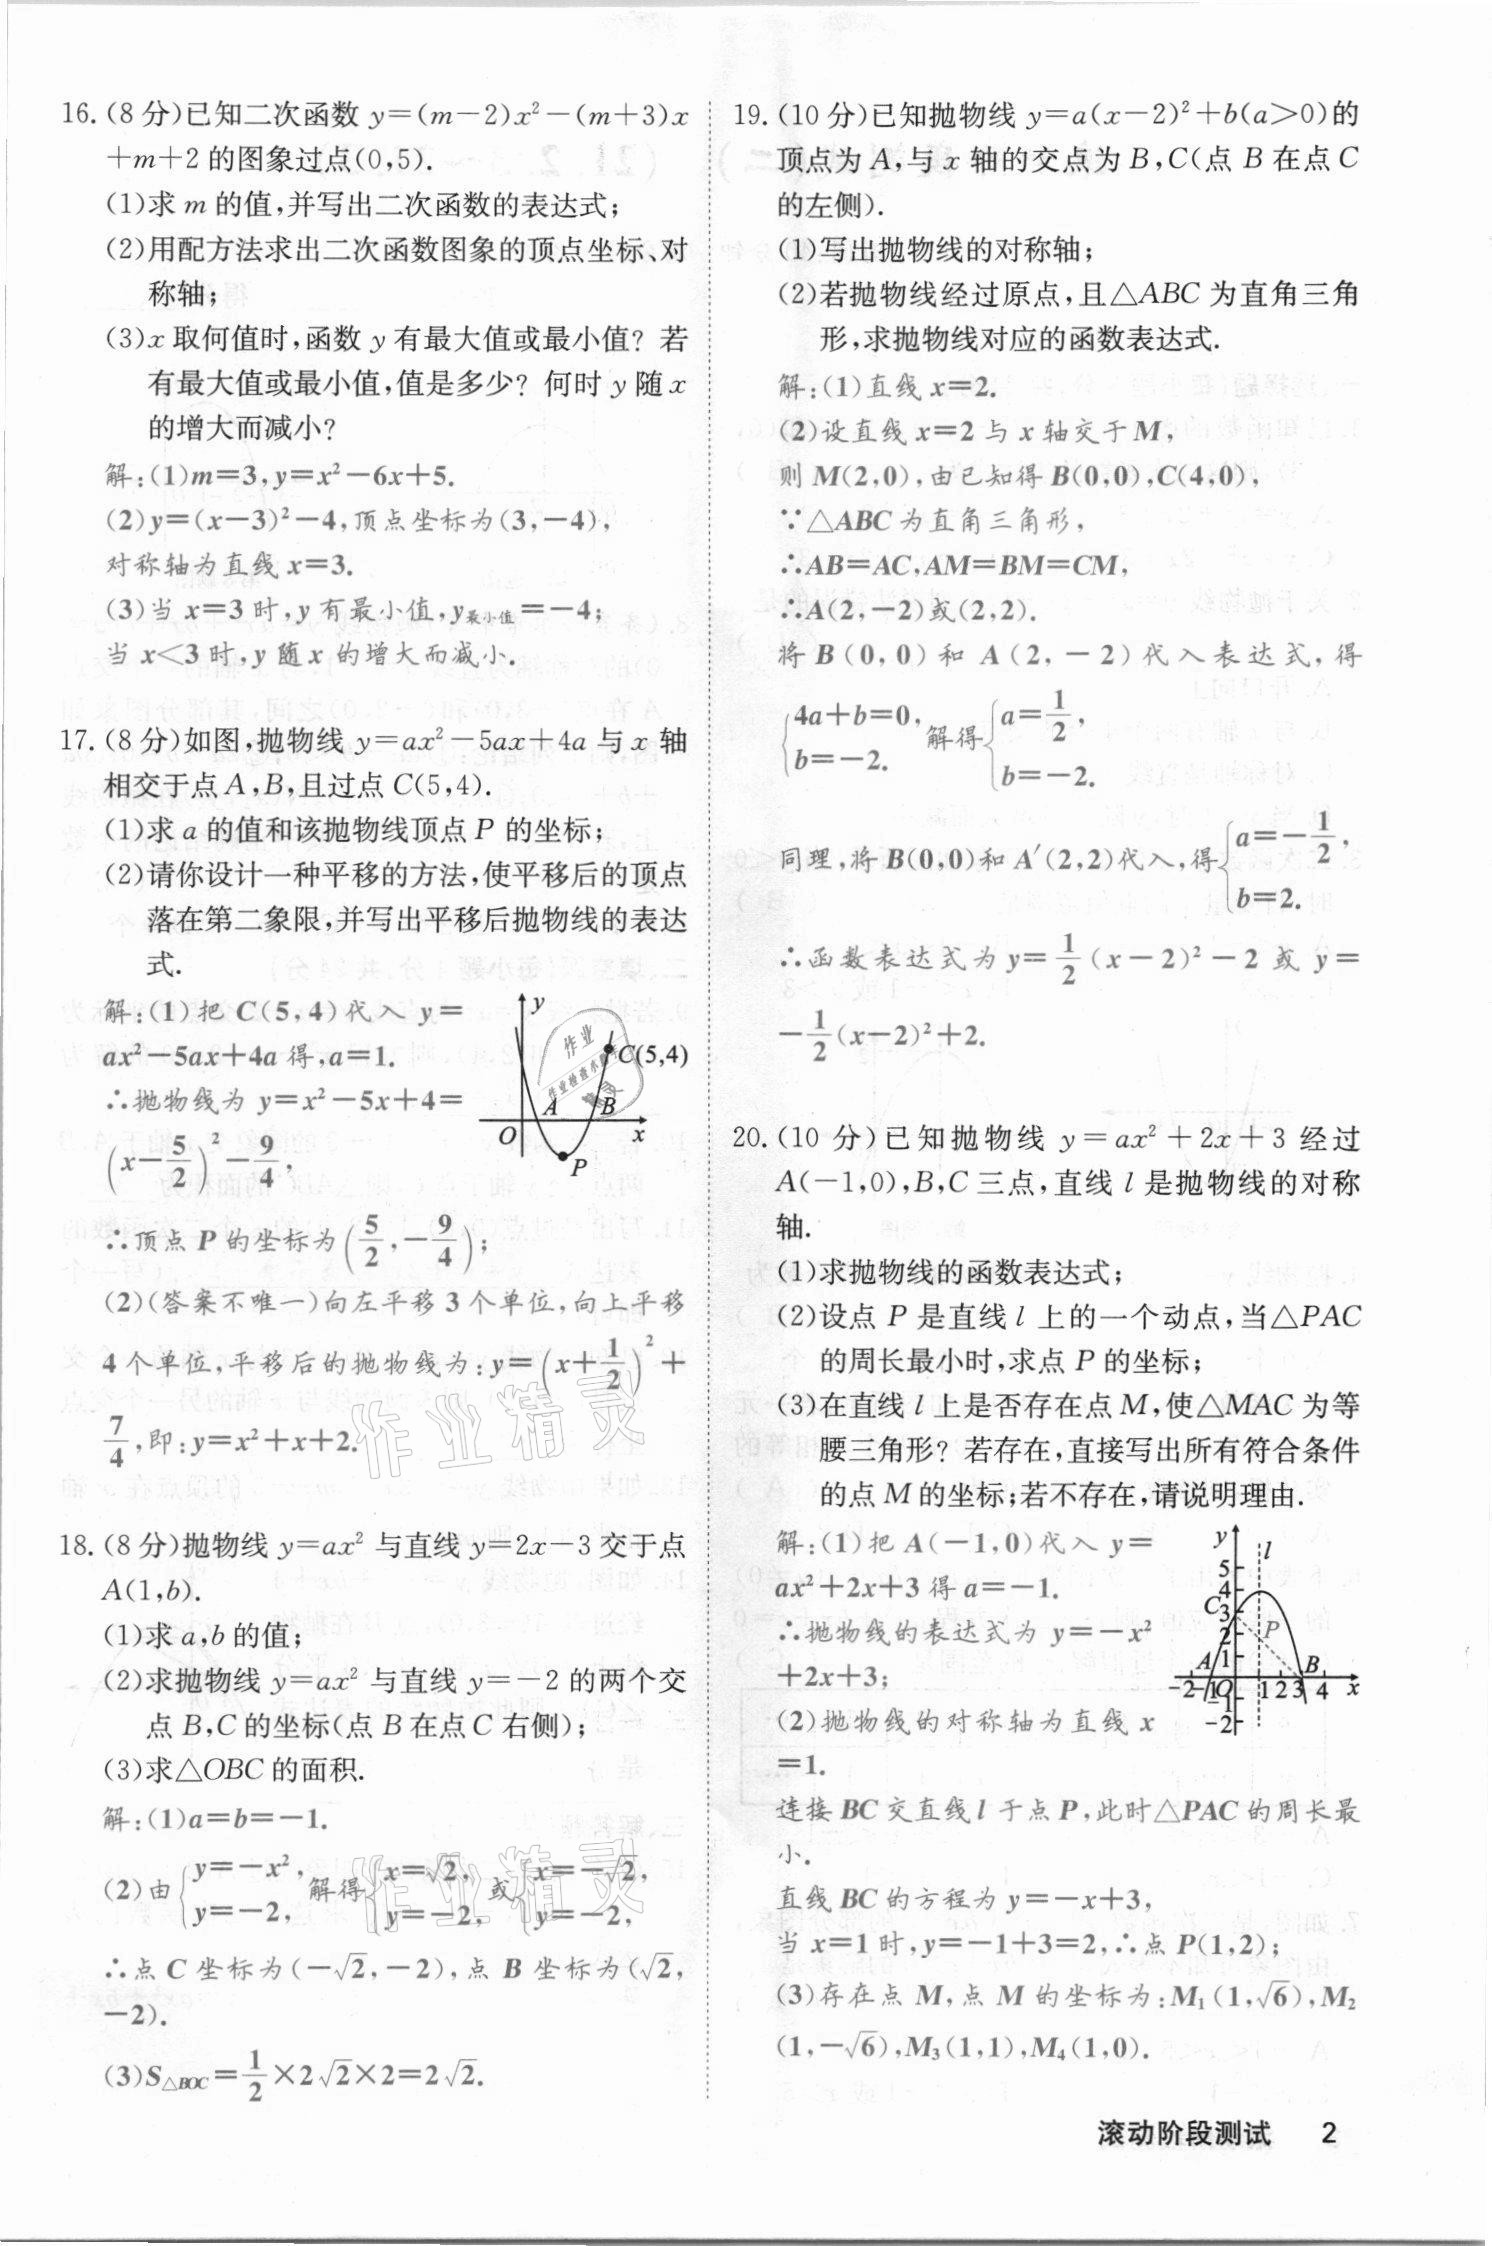 16. (8 分)已知二次函数 y=(m-2)x²-(m+3)x
+m+2 的图象过点(0,5).
(1)求 m 的值,并写出二次函数的表达式;
(2)用配方法求出二次函数图象的顶点坐标、对
称轴;
(3)x 取何值时,函数 y 有最大值或最小值? 若
有最大值或最小值,值是多少? 何时 y 随 x
的增大而减小?
解:(1)m=3,y=x²-6x+5.
(2)y=(x-3)²-4,顶点坐标为(3,-4),
对称轴为直线 x=3.
(3)当 x=3 时,y 有最小值,y最小值=-4;
当 x<3 时,y 随 x 的增大而减小.
17. (8 分)如图,抛物线 y=ax²-5ax+4a 与 x 轴
相交于点 A,B,且过点 C(5,4).
(1)求 a 的值和该抛物线顶点 P 的坐标;
(2)请你设计一种平移的方法,使平移后的顶点
落在第二象限,并写出平移后抛物线的表达
式.
解:(1)把 C(5,4)代入 y=
ax²-5ax+4a 得,a=1.
∴抛物线为 y=x²-5x+4=
(x-5/2)²-9/4,
y
C(5,4)
A B
O x
P
∴顶点 P 的坐标为(5/2,-9/4);
(2)(答案不唯一)向左平移 3 个单位,向上平移
4 个单位,平移后的抛物线为:y=(x+1/2)²+
7/4,即:y=x²+x+2.
18. (8 分)抛物线 y=ax² 与直线 y=2x-3 交于点
A(1,b).
(1)求 a,b 的值;
(2)求抛物线 y=ax² 与直线 y=-2 的两个交
点 B,C 的坐标(点 B 在点 C 右侧);
(3)求△OBC 的面积.
解:(1)a=b=-1.
(2)由{y=-x², y=-2, 解得{x=√2, y=-2, 或{x=-√2, y=-2,
∴点 C 坐标为(-√2,-2),点 B 坐标为(√2,
-2).
(3)S△BOC=1/2×2√2×2=2√2.
19. (10 分)已知抛物线 y=a(x-2)²+b(a>0)的
顶点为 A,与 x 轴的交点为 B,C(点 B 在点 C
的左侧).
(1)写出抛物线的对称轴;
(2)若抛物线经过原点,且△ABC 为直角三角
形,求抛物线对应的函数表达式.
解:(1)直线 x=2.
(2)设直线 x=2 与 x 轴交于 M,
则 M(2,0),由已知得 B(0,0),C(4,0),
∵△ABC 为直角三角形,
∴AB=AC,AM=BM=CM,
∴A(2,-2)或(2,2).
将 B(0,0)和 A(2,-2)代入表达式,得
{4a+b=0, b=-2. 解得{a=1/2, b=-2.
同理,将 B(0,0)和 A′(2,2)代入,得{a=-1/2, b=2.
∴函数表达式为 y=1/2(x-2)²-2 或 y=
-1/2(x-2)²+2.
20. (10 分)已知抛物线 y=ax²+2x+3 经过
A(-1,0),B,C 三点,直线 l 是抛物线的对称
轴.
(1)求抛物线的函数表达式;
(2)设点 P 是直线 l 上的一个动点,当△PAC
的周长最小时,求点 P 的坐标;
(3)在直线 l 上是否存在点 M,使△MAC 为等
腰三角形? 若存在,直接写出所有符合条件
的点 M 的坐标;若不存在,请说明理由.
解:(1)把 A(-1,0)代入 y=
ax²+2x+3 得 a=-1.
∴抛物线的表达式为 y=-x²
+2x+3;
(2)抛物线的对称轴为直线 x
=1.
y
l
5
4
C 3
2 P
1
A B
-2 -1 O 1 2 3 4 x
-1
-2
连接 BC 交直线 l 于点 P,此时△PAC 的周长最
小.
直线 BC 的方程为 y=-x+3,
当 x=1 时,y=-1+3=2,∴点 P(1,2);
(3)存在点 M,点 M 的坐标为:M₁(1,√6),M₂
(1,-√6),M₃(1,1),M₄(1,0).
作业精灵
作业精灵
滚动阶段测试 2